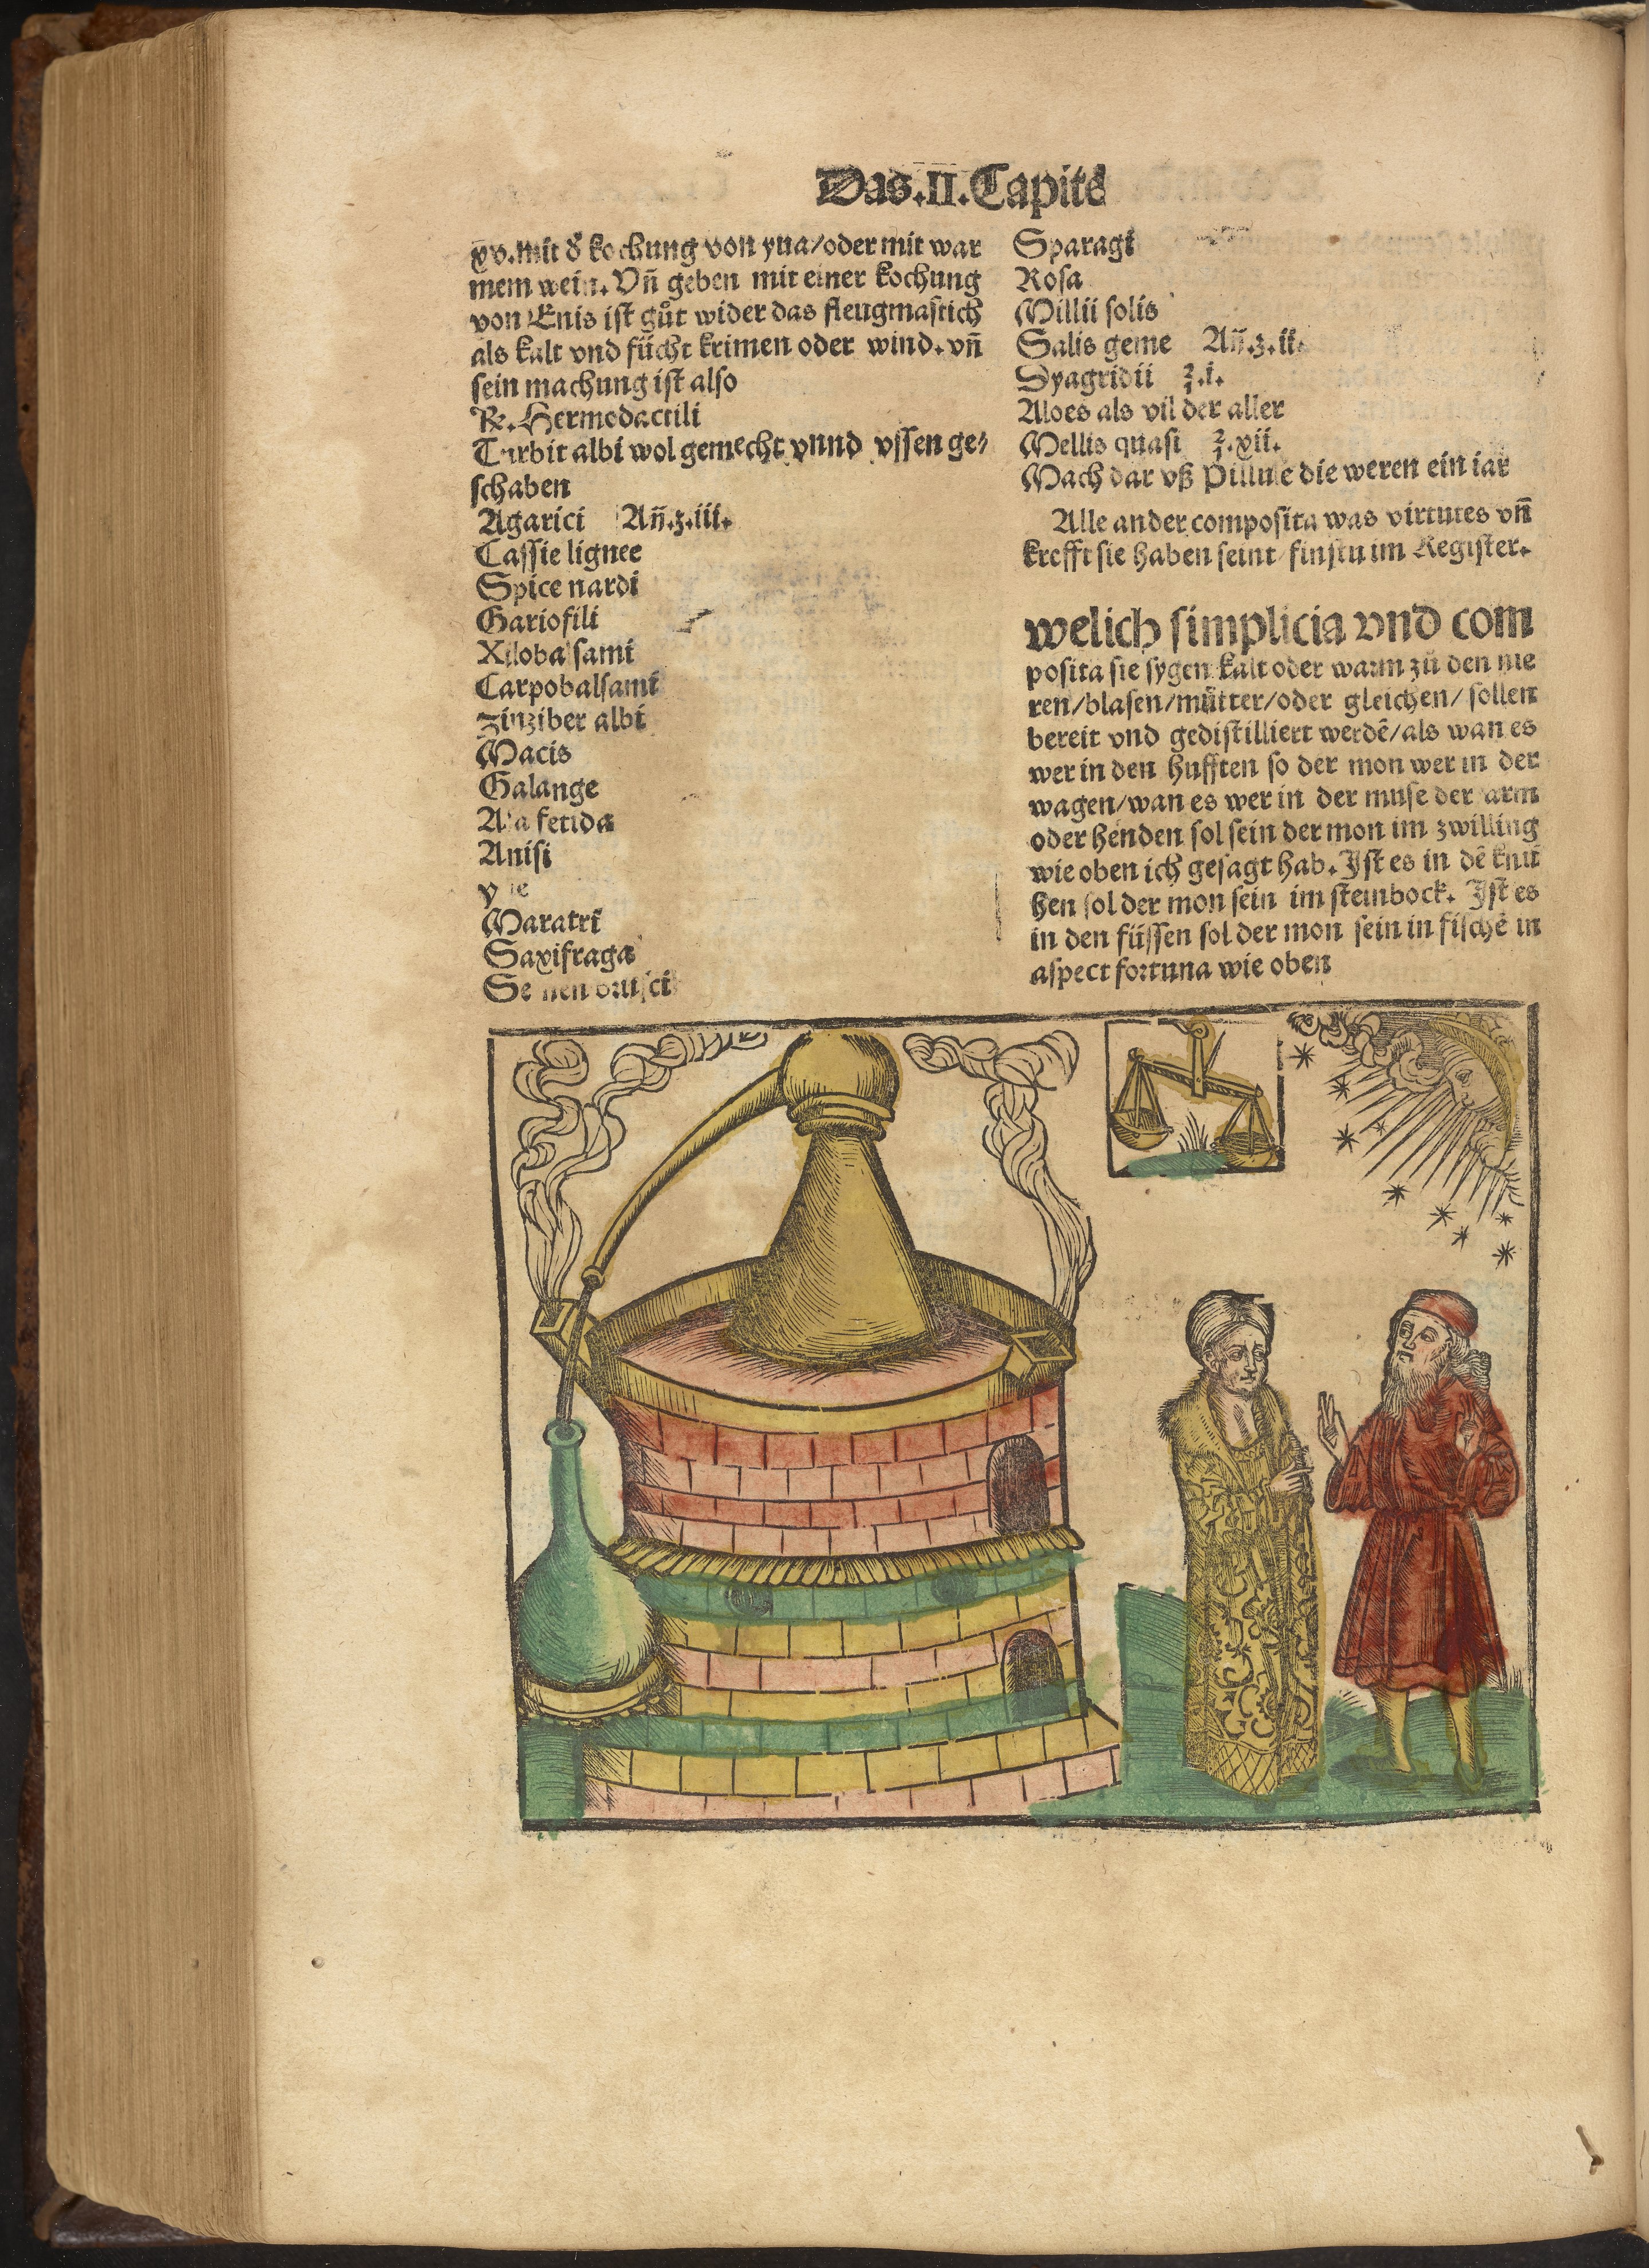 Das.II.Capitẽ
xv.mit dͤ kochung von yua/oder mit war
mem wein. Vñ geben mit einer kochung
von Enis ist gůt wider das fleugmastich
als kalt vnd fücht krimen oder wind. vñ
sein machung ist also
℞. Hermodactili
Turbit albi wol gemecht vnnd vssen ge⸗
schaben
Agarici Añ.ʒ.iii.
Cassie lignee
Spice nardi
Gariofili
Xilobalsami
Carpobalsami
Zinziber albi
Macis
Galange
Asa fetida
Anisi
Maratri
Saxifraga
Semen brusci
Sparagi
Rosa
Millii solis
Salis geme Añ.ʒ.ii.
Dyagridii ʒ.i.
Aloes als vil der aller
Mellis quasi ʒ.xii.
Mach dar vß Pillule die weren ein iar
Alle ander composita was virtutes vñ
krefft sie haben seint finstu im Register.
welich simplicia vnd com
posita sie sygen kalt oder warm zů den nie
ren/blasen/můtter/oder gleichen/sollen
bereit vnd gedistilliert werdẽ/als wan es
wer in den hufften so der mon wer in der
wagen/wan es wer in der muse der arm
oder henden sol sein der mon im zwilling
wie oben ich gesagt hab. Ist es in dẽ knü
hen sol der mon sein im steinbock. Ist es
in den füssen sol der mon sein in fischẽ in
aspect fortuna wie oben